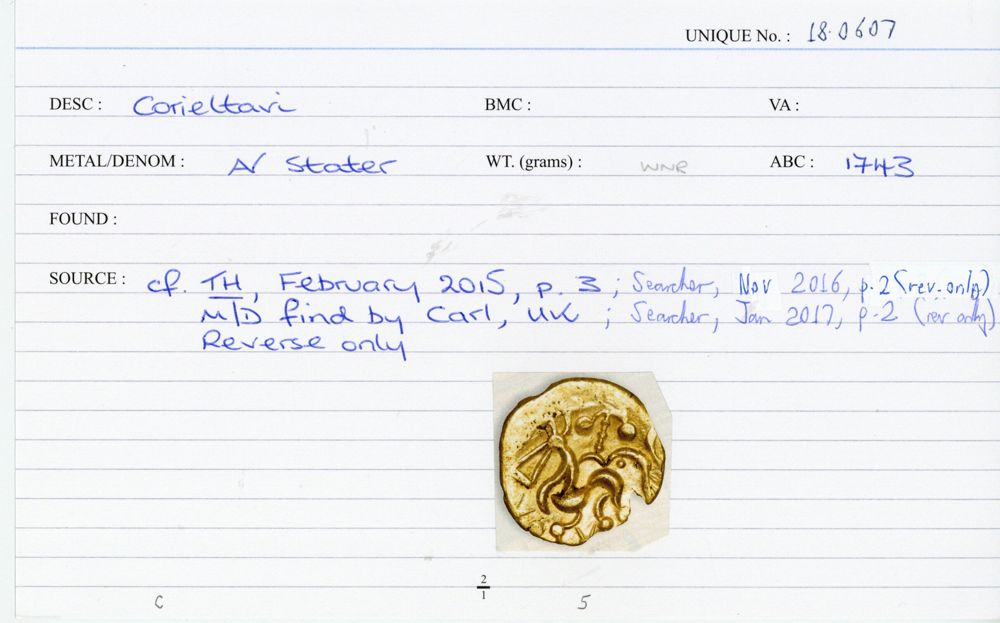 UNIQUE No. : 18.0607
DESC : Corieltavi BMC : VA :
METAL/DENOM : AV Stater WT. (grams) : WNR ABC : 1743
FOUND :
SOURCE : cf. TH, February 2015, p. 3 ; Searcher, Nov 2016, p.2 (rev. only)
M/D find by Carl, UK ; Searcher, Jan 2017, p.2 (rev only)
Reverse only
2
1
C 5